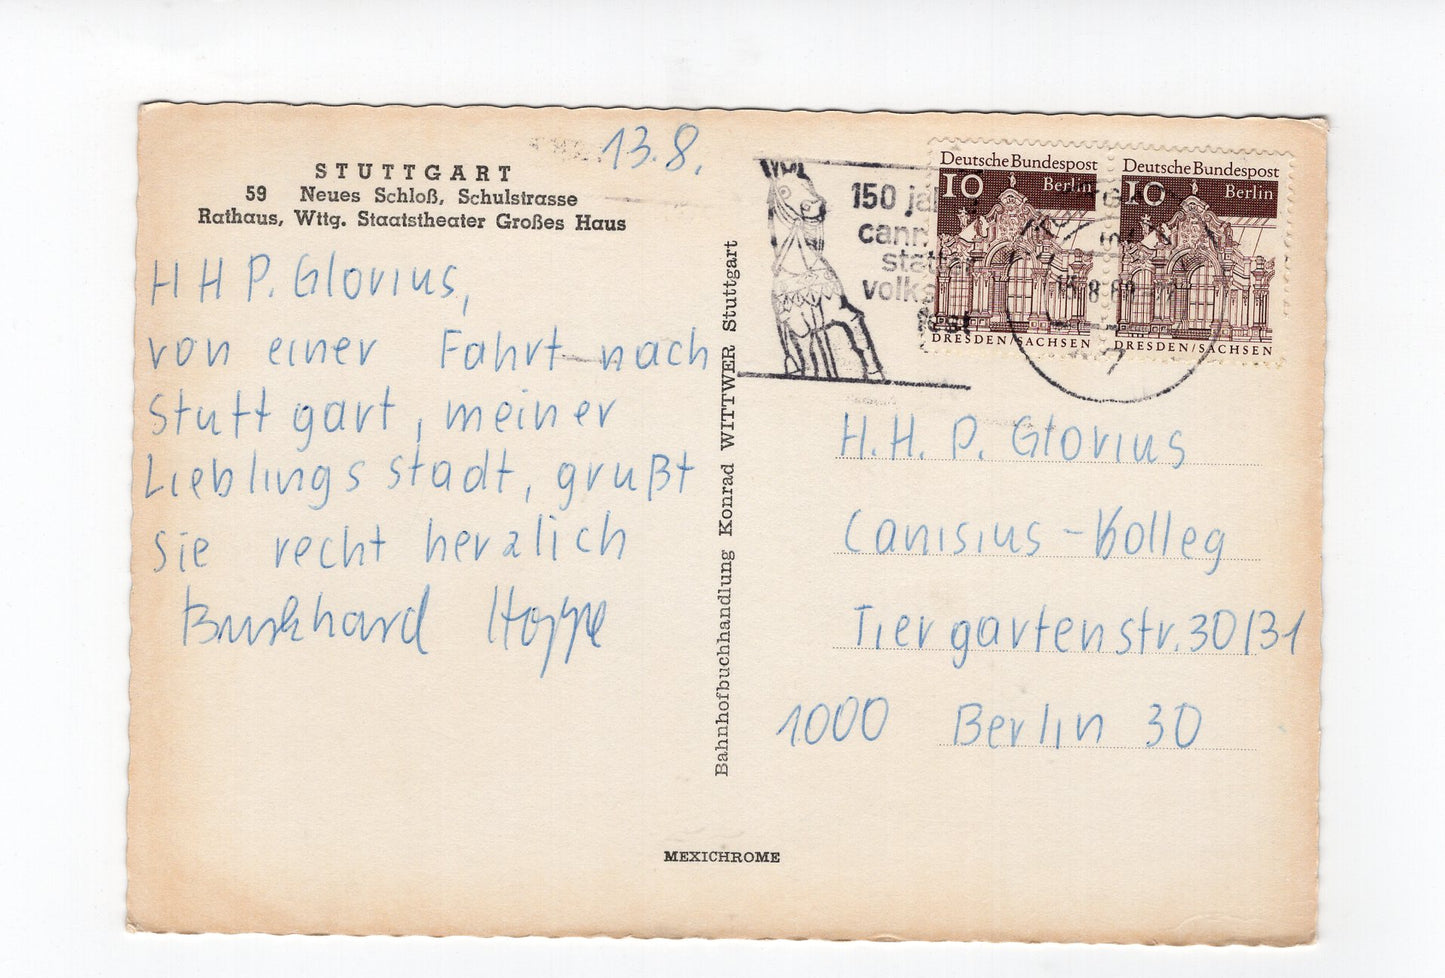 13.8.
STUTTGART
59 Neues Schloß, Schulstrasse
Rathaus, Wttg. Staatstheater Großes Haus
H H P. Glorius,
von einer Fahrt nach
Stuttgart, meiner
Lieblingsstadt, grußt
Sie recht herzlich
Burkhard Hoppe
Bahnhofbuchhandlung Konrad WITTWER Stuttgart
MEXICHROME
150 jahre
cann
statter
volks
fest
Deutsche Bundespost
10 Berlin
DRESDEN/SACHSEN
Deutsche Bundespost
10 Berlin
DRESDEN/SACHSEN
H. H. P. Glorius
Canisius-Kolleg
Tiergartenstr. 30/31
1000 Berlin 30